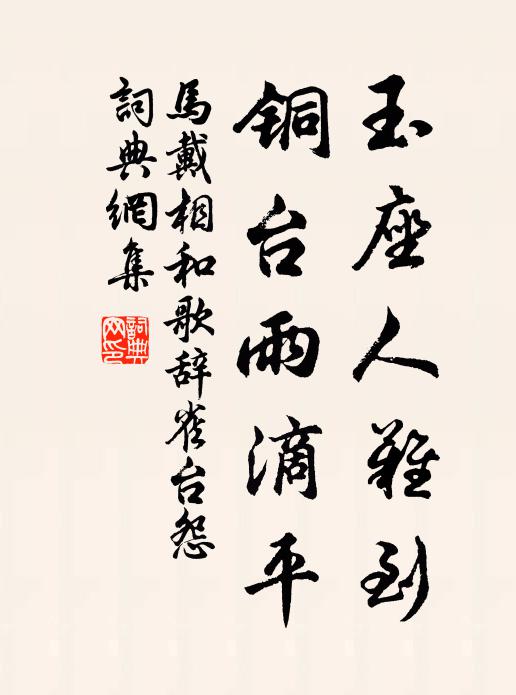 玉座人難到
铜台雨滴平
馬戴相和歌辞雀台怨
詞典網集
詞典网印